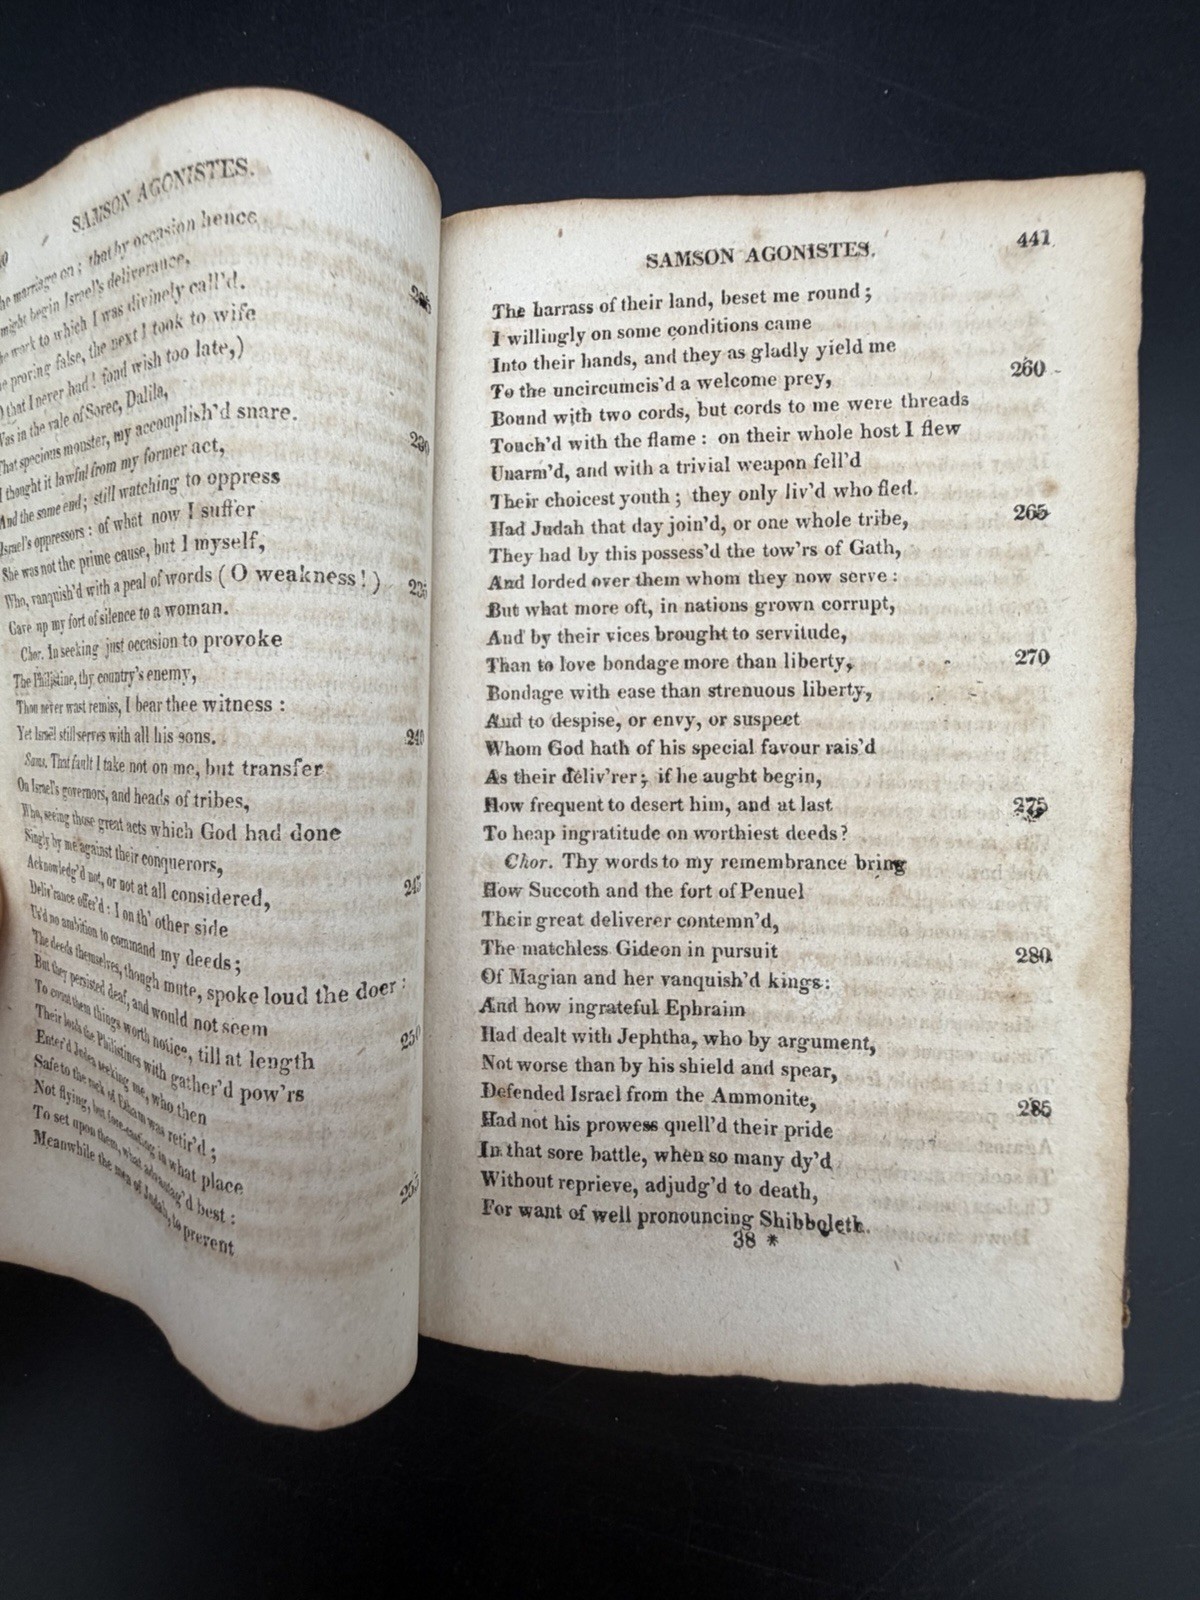 SAMSON AGONISTES.
he marriage on ; that by occasion hence
might begin Israel's deliverance, 225
he work to which I was divinely call'd.
e proving false, the next I took to wife
O that I never had ! fond wish too late,)
Was in the vale of Sorec, Dalila,
That specious monster, my accomplish'd snare. 230
I thought it lawful from my former act,
And the same end ; still watching to oppress
Israel's oppressors : of what now I suffer
She was not the prime cause, but I myself,
Who, vanquish'd with a peal of words ( O weakness ! ) 235
Gave up my fort of silence to a woman.
Chor. In seeking just occasion to provoke
The Philistine, thy country's enemy,
Thou never wast remiss, I bear thee witness :
Yet Israël still serves with all his sons. 240
Sams. That fault I take not on me, but transfer
On Israel's governors, and heads of tribes,
Who, seeing those great acts which God had done
Singly by me against their conquerors,
Acknowledg'd not, or not at all considered, 245
Deliv'rance offer'd : I on th' other side
Us'd no ambition to command my deeds ;
The deeds themselves, though mute, spoke loud the doer :
But they persisted deaf, and would not seem
To count them things worth notice, till at length 250
Their lords the Philistines with gather'd pow'rs
Enter'd Judea seeking me, who then
Safe to the rock of Etham was retir'd ;
Not flying, but fore-casting in what place
To set upon them, what advantag'd best : 255
Meanwhile the men of Judah, to prevent
SAMSON AGONISTES. 441
The harrass of their land, beset me round ;
I willingly on some conditions came
Into their hands, and they as gladly yield me
To the uncircumcis'd a welcome prey, 260
Bound with two cords, but cords to me were threads
Touch'd with the flame : on their whole host I flew
Unarm'd, and with a trivial weapon fell'd
Their choicest youth ; they only liv'd who fled.
Had Judah that day join'd, or one whole tribe, 265
They had by this possess'd the tow'rs of Gath,
And lorded over them whom they now serve :
But what more oft, in nations grown corrupt,
And by their vices brought to servitude,
Than to love bondage more than liberty, 270
Bondage with ease than strenuous liberty,
And to despise, or envy, or suspect
Whom God hath of his special favour rais'd
As their deliv'rer ; if he aught begin,
How frequent to desert him, and at last 275
To heap ingratitude on worthiest deeds ?
Chor. Thy words to my remembrance bring
How Succoth and the fort of Penuel
Their great deliverer contemn'd,
The matchless Gideon in pursuit 280
Of Magian and her vanquish'd kings :
And how ingrateful Ephraim
Had dealt with Jephtha, who by argument,
Not worse than by his shield and spear,
Defended Israel from the Ammonite, 285
Had not his prowess quell'd their pride
In that sore battle, when so many dy'd
Without reprieve, adjudg'd to death,
For want of well pronouncing Shibboleth.
38 *